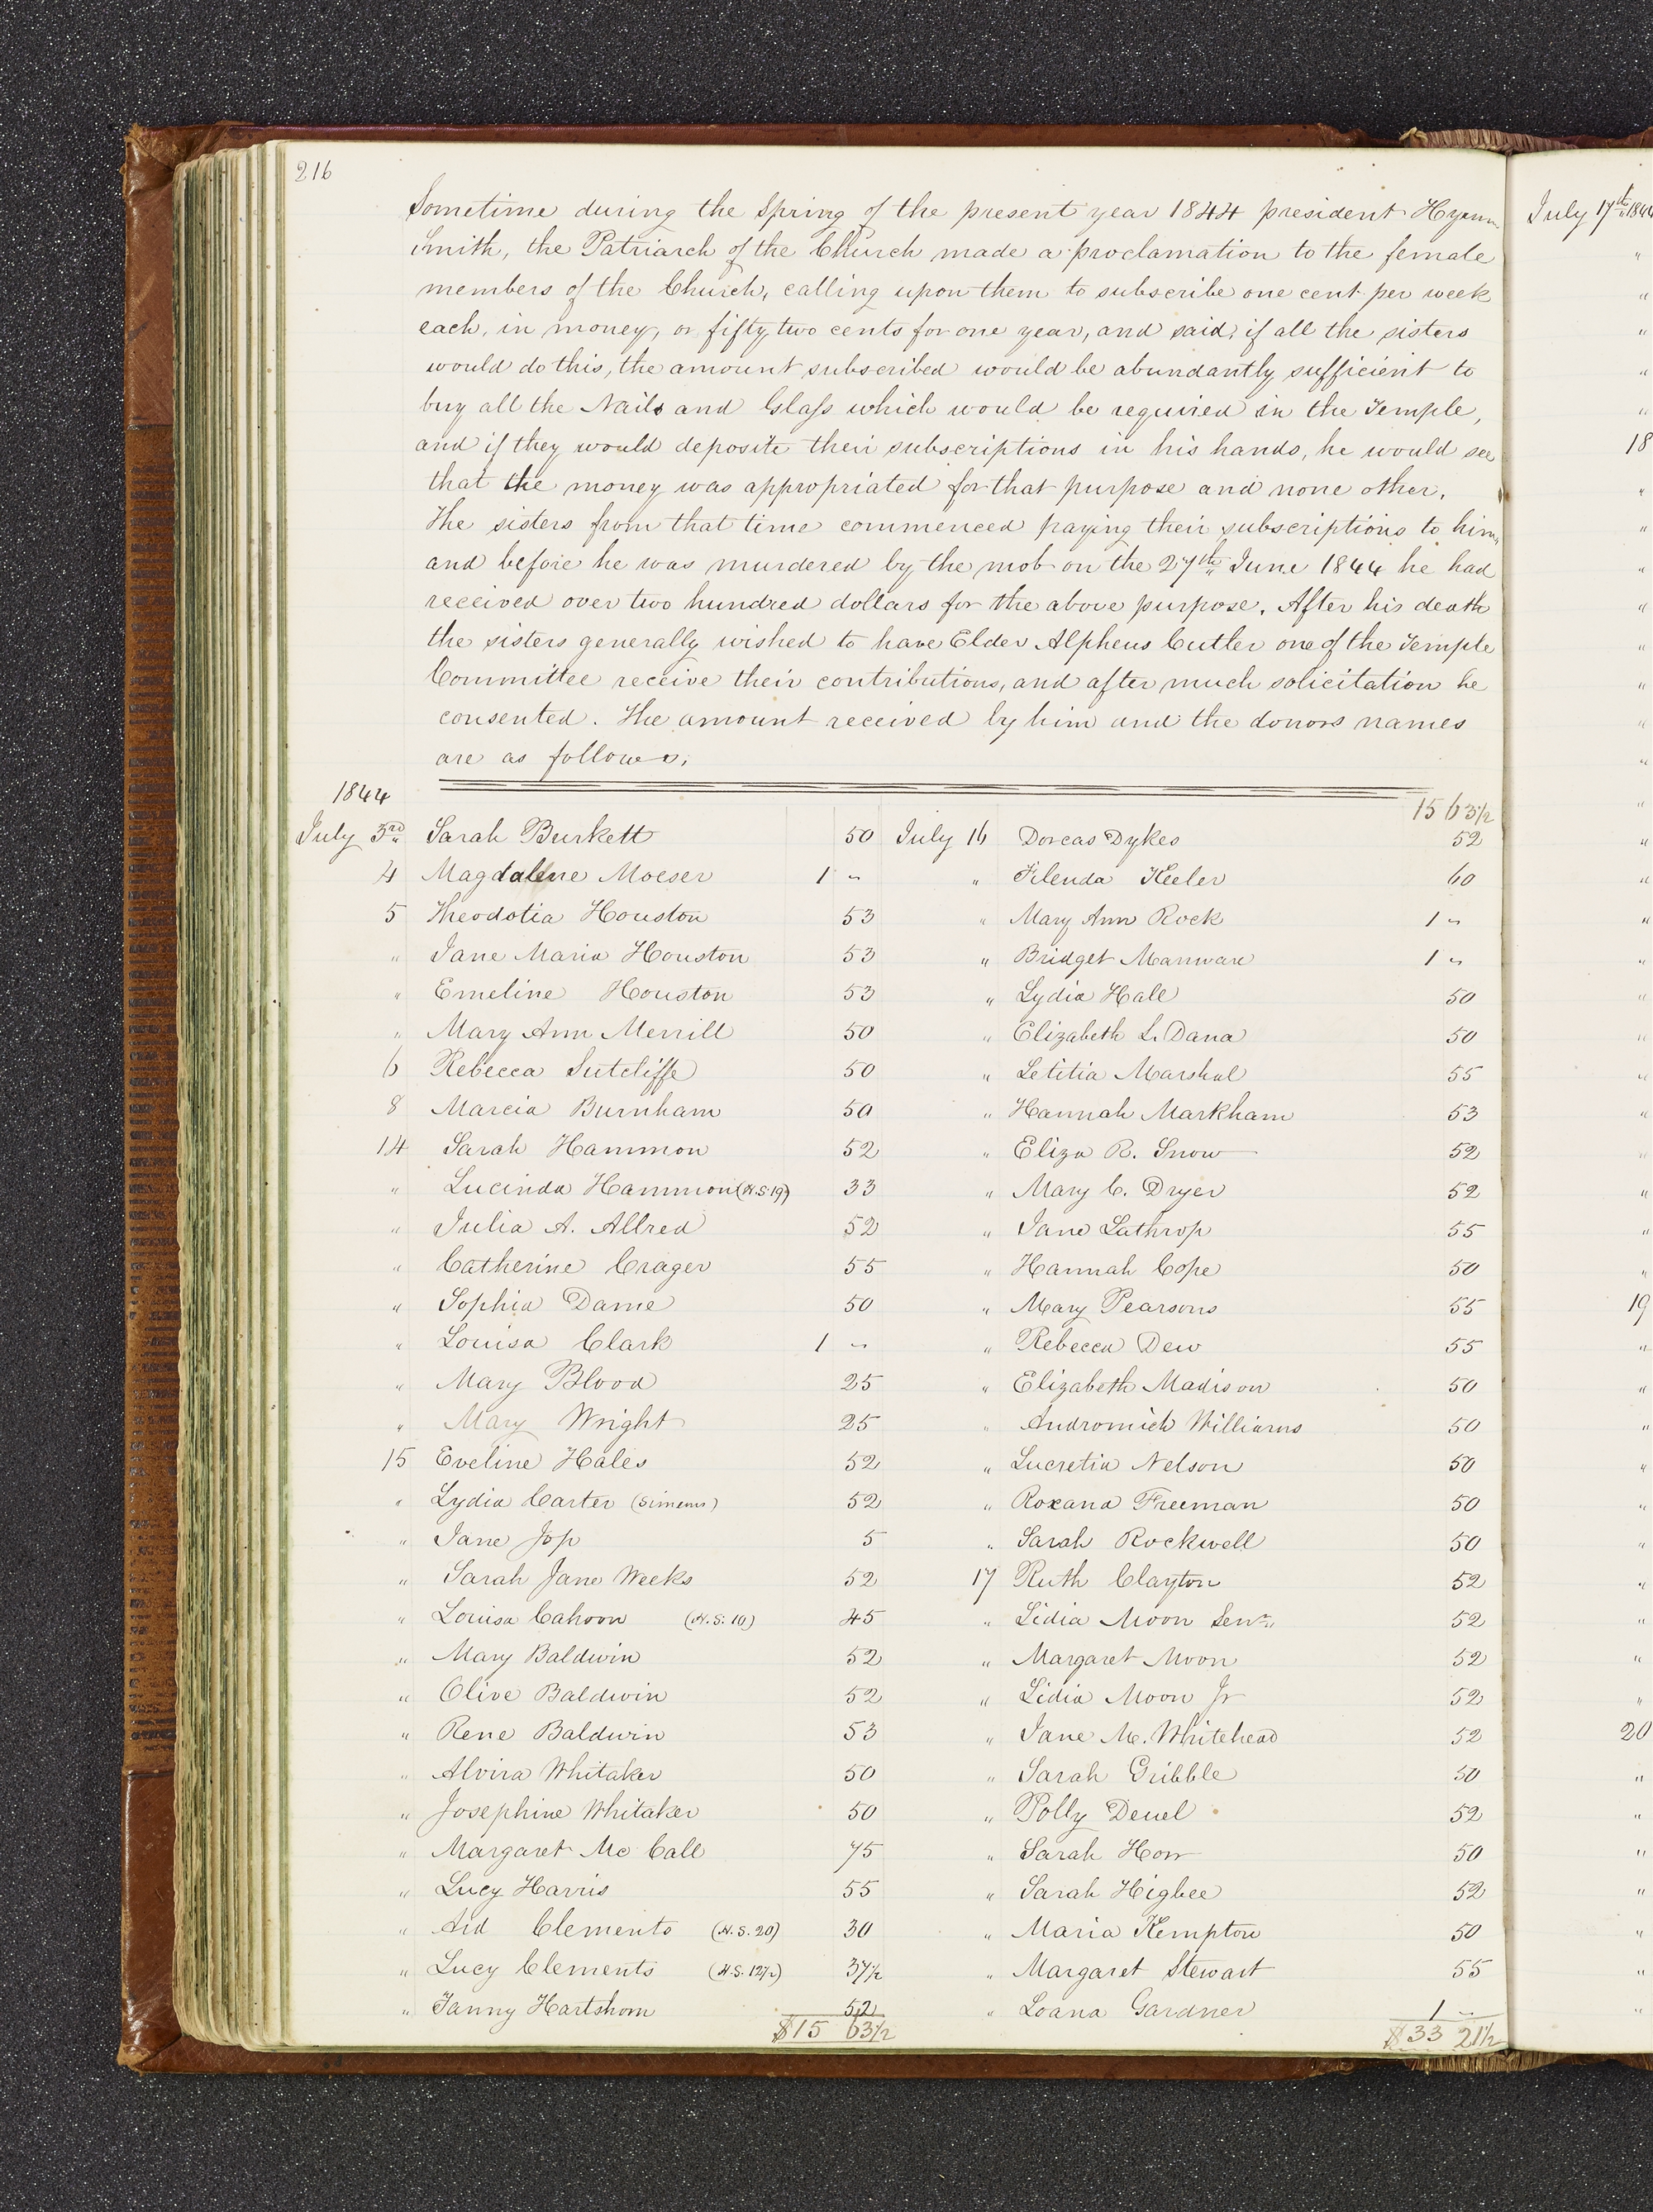 216
Sometime during the Spring of the present year 1844 president Hyrum
Smith, the Patriarch of the Church made a proclamation to the female
members of the Church, calling upon them to subscribe one cent per week
each, in money, or fifty two cents for one year, and said, if all the sisters
would do this, the amount subscribed would be abundantly sufficient to
buy all the Nails and Glass which would be required in the Temple,
and if they would deposite their subscriptions in his hands, he would see
that the money was appropriated for that purpose and none other.
The sisters from that time commenced paying their subscriptions to him,
and before he was murdered by the mob on the 27th June 1844 he had
received over two hundred dollars for the above purpose. After his death
the sisters generally wished to have Elder Alpheus Cutler one of the Temple
Committee receive their contributions, and after much solicitation he
consented. The amount received by him and the donors names
are as follows;
1844
July 3rd Sarah Burkett 50
4 Magdalene Moeser 1 "
5 Theodotia Houston 53
" Jane Maria Houston 53
" Emeline Houston 53
" Mary Ann Merrill 50
6 Rebecca Sutcliffe 50
8 Marcia Burnham 50
14 Sarah Hammon 52
" Lucinda Hammon (H.S. 19) 33
" Julia A. Allred 52
" Catherine Crager 55
" Sophia Dame 50
" Louisa Clark 1 "
" Mary Blood 25
" Mary Wright 25
15 Eveline Hales 52
" Lydia Carter (Simens) 52
" Jane Jop 5
" Sarah Jane Weeks 52
" Louisa Cahoon (H.S. 10) 45
" Mary Baldwin 52
" Olive Baldwin 52
" Rene Baldwin 53
" Alvira Whitaker 50
" Josephine Whitaker 50
" Margaret Mc Call 75
" Lucy Harris 55
" Aid Clements (H.S. 20) 30
" Lucy Clements (H.S. 12 1/2) 37 1/2
" Fanny Hartshorn 52
$15 63 1/2
15 63 1/2
July 16 Dorcas Dykes 52
" Filenda Keeler 60
" Mary Ann Rock 1 "
" Bridget Manware 1 "
" Lydia Hall 50
" Elizabeth L. Dana 50
" Letitia Marshal 55
" Hannah Markham 53
" Eliza R. Snow 52
" Mary C. Dryer 52
" Jane Lathrop 55
" Hannah Cope 50
" Mary Pearsons 55
" Rebecca Dew 55
" Elizabeth Madison 50
" Andromich Williams 50
" Lucretia Nelson 50
" Roxana Freeman 50
" Sarah Rockwell 50
17 Ruth Clayton 52
" Lidia Moon Senr. 52
" Margaret Moon 52
" Lidia Moon Jr 52
" Jane M. Whitehead 52
" Sarah Gribble 50
" Polly Deuel 52
" Sarah Horr 50
" Sarah Higbee 52
" Maria Kempton 50
" Margaret Stewart 55
" Loana Gardner 1 "
$33 21 1/2
July 17th 1844
18
19
20